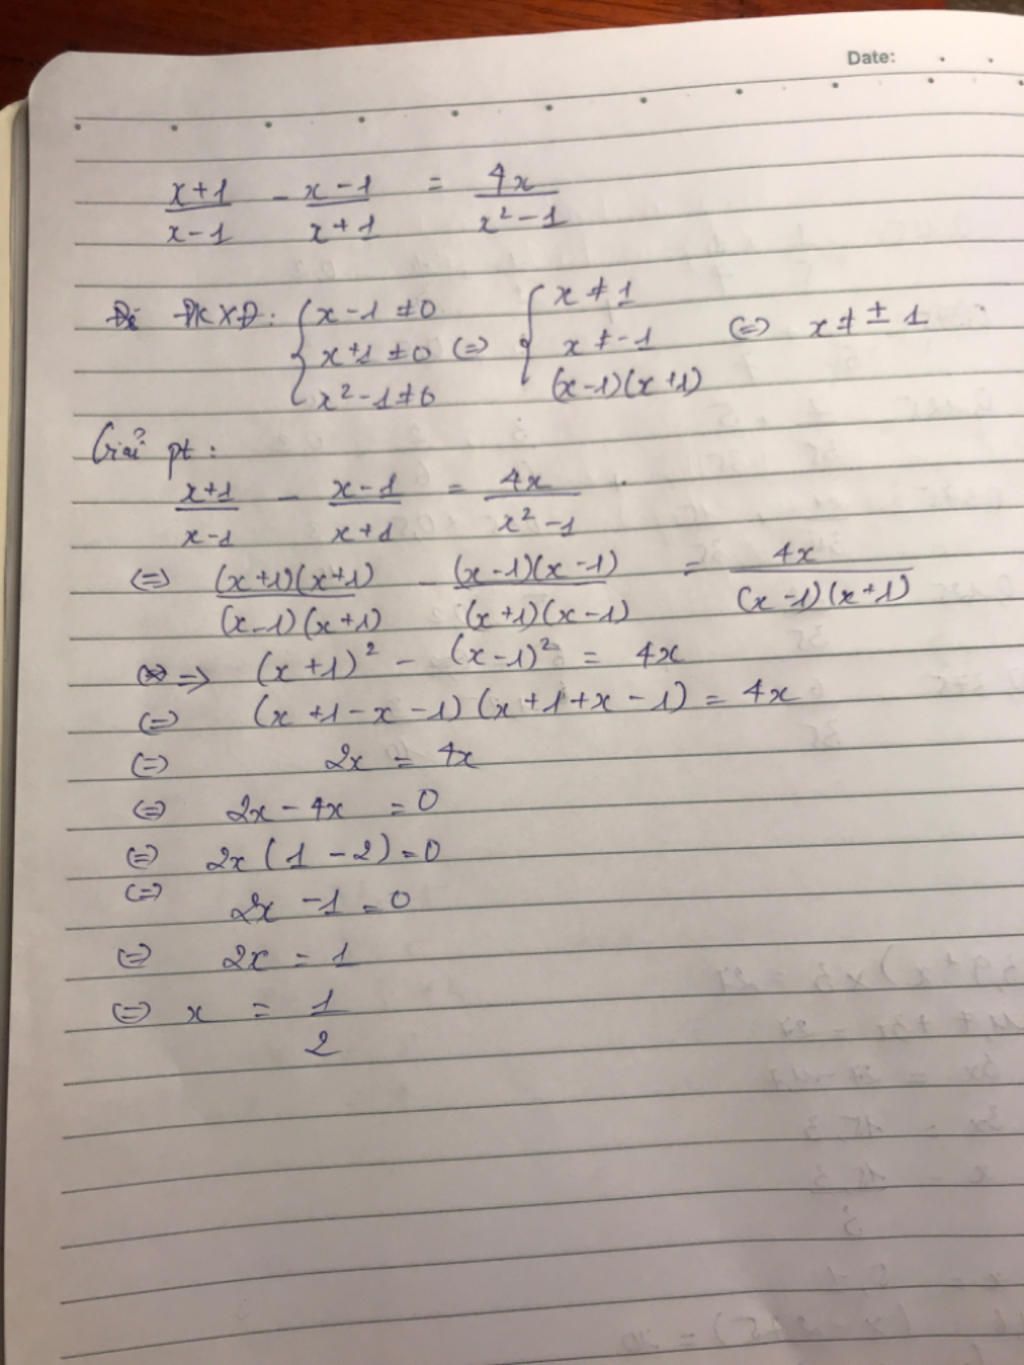 Date:
x+1/x-1 - x-1/x+1 = 4x/x²-1
ĐKXĐ: { x-1≠0 x+1≠0 x²-1≠0 (=) { x≠1 x≠-1 (x-1)(x+1) (=) x≠±1
Giải pt:
x+1/x-1 - x-1/x+1 = 4x/x²-1
(=) (x+1)(x+1)/(x-1)(x+1) - (x-1)(x-1)/(x+1)(x-1) = 4x/(x-1)(x+1)
=> (x+1)² - (x-1)² = 4x
(=) (x+1-x-1)(x+1+x-1) = 4x
(=) 2x = 4x
(=) 2x-4x = 0
(=) 2x(1-2)=0
(=) 2x-1=0
(=) 2x = 1
(=) x = 1/2